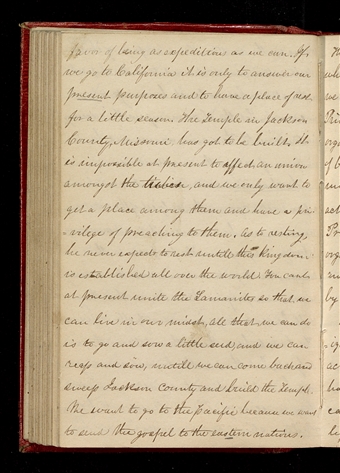 favor of being as expeditious as we can. If
we go to California it is only to answer our
present purposes and to have a place of rest
for a little season. The Temple in Jackson
County, Missouri has got to be built. It
is impossible at present to effect an union
amongst the tribes, and we only want to
get a place among them and have a pri-
vilege of preaching to them. As to resting,
he never expects to rest until the Kingdom
is established all over the world. You cant
at present unite the Lamanites so that we
can live in our midst, all that we can do
is to go and sow a little seed, and we can
reap and sow, until we can come back and
sweep Jackson County and build the Temple.
We want to go to the Pacific because we want
to send the gospel to the eastern nations.